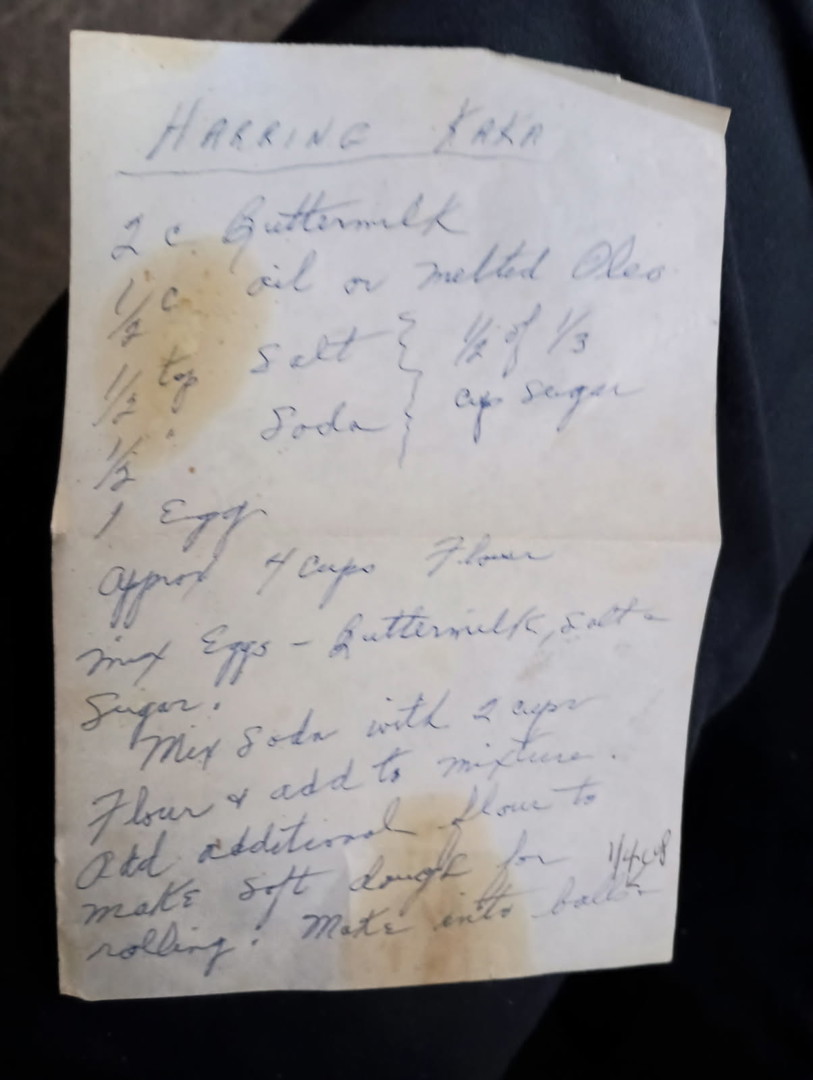 HARRING KAKA
2 c Buttermilk
1/2 c oil or melted Oleo
1/2 tsp Salt } 1/2 of 1/3
1/2 " Soda } cup sugar
1 Egg
Approx 4 cups Flour
Mix Eggs - Buttermilk, Salt &
Sugar.
Mix Soda with 2 cups
Flour & add to mixture.
Add additional flour to
make soft dough for
rolling. Make into balls